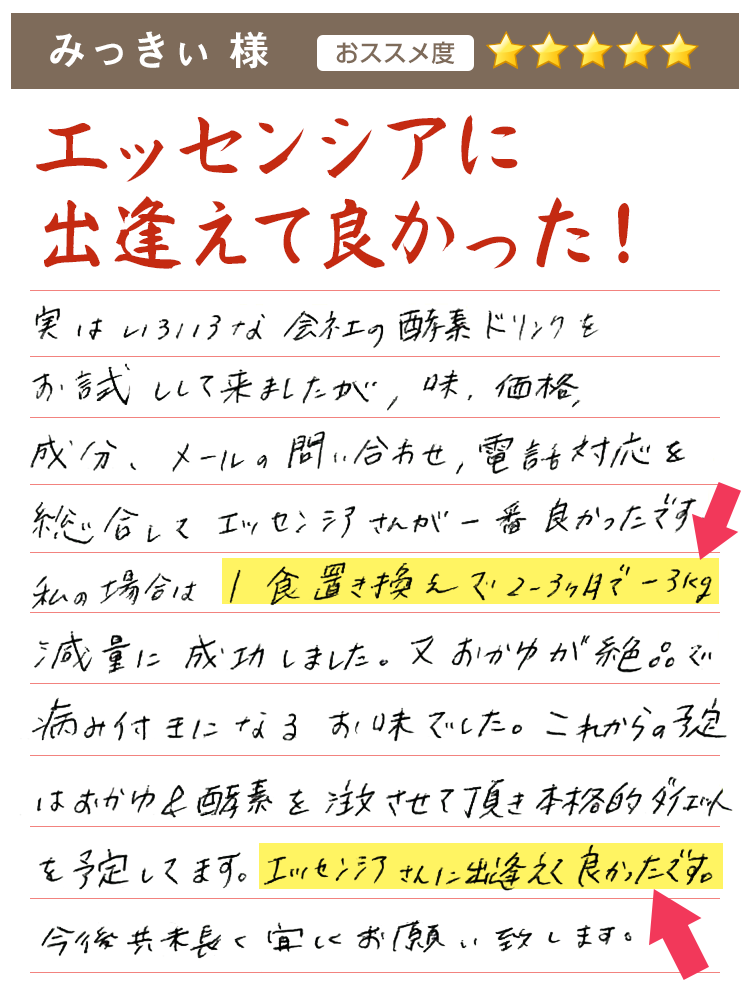 みっきぃ 様 おススメ度
エッセンシアに
出逢えて良かった!
実はいろいろな会社の酵素ドリンクを
お試ししして来ましたが、味、価格、
成分、メールの問い合わせ、電話対応を
総合して エッセンシアさんが一番良かったです
私の場合は 1食置き換えで2~3ヶ月で-3kg
減量に成功しました。又おかゆが絶品で
病み付きになるお味でした。これからの予定
はおかゆ&酵素を注文させて頂き本格的ダイエット
を予定してます。エッセンシアさんに出逢えて良かったです。
今後共末長く宜しくお願い致します。